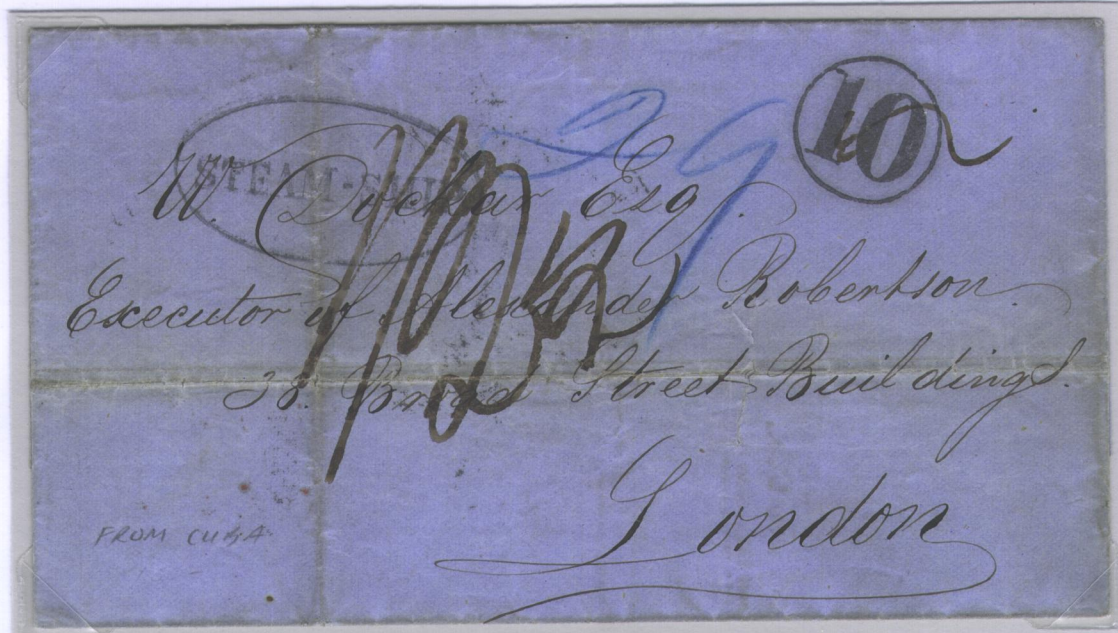 10
STEAM-SHIP
W. Dockar Esq.
Executor of Alexander Robertson
38. Broad Street Buildings.
London
FROM CUBA